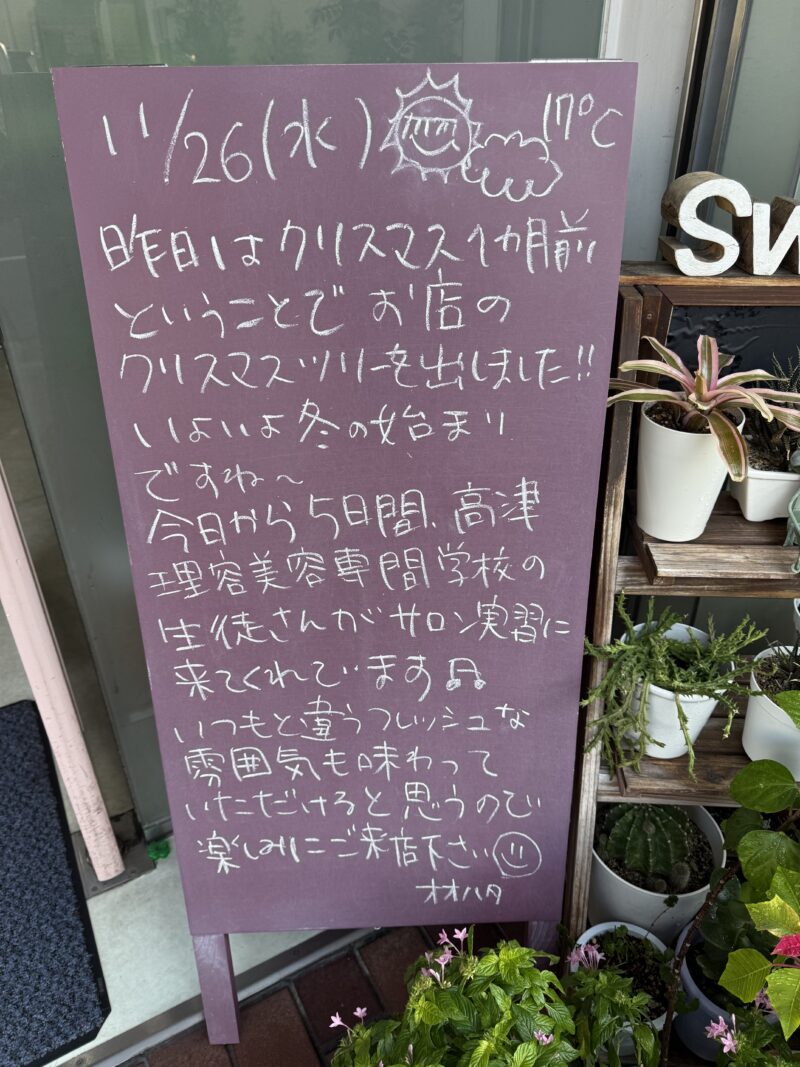 11/26(水) 17°C
昨日はクリスマス1カ月前
ということでお店の
クリスマスツリーを出しました!!
いよいよ冬の始まり
ですね〜
今日から5日間、高津
理容美容専間学校の
生徒さんがサロン実習に
来てくれています♫
いつもと違うフレッシュな
雰囲気も味わって
いただけると思うので
楽しみにご来店下さい
オオハタ
Sw